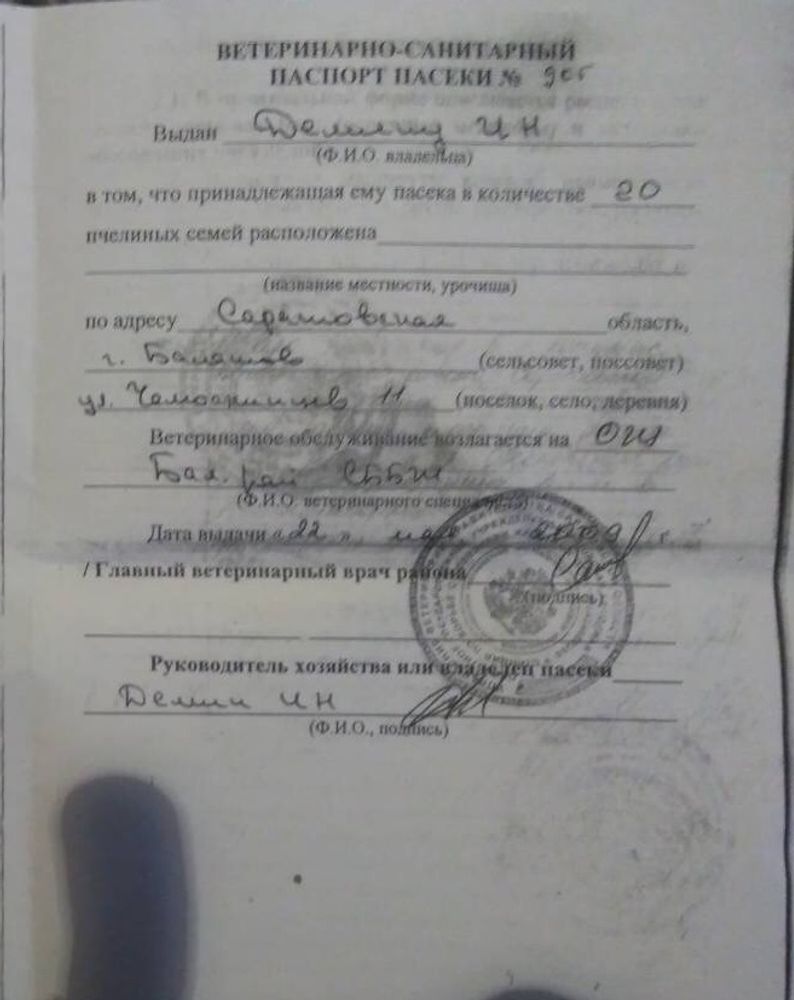 ВЕТЕРИНАРНО-САНИТАРНЫЙ
ПАСПОРТ ПАСЕКИ №
Выдан Демину И Н
(Ф.И.О. владельца)
в том, что принадлежащая ему пасека в количестве 20
пчелиных семей расположена
(название местности, урочища)
по адресу Саратовская область,
г. Балашов (сельсовет, поссовет)
ул. 11 (поселок, село, деревня)
Ветеринарное обслуживание возлагается на ОГУ
Бал. рай СББЖ
(Ф.И.О. ветеринарного специалиста)
Дата выдачи «22» г.
/ Главный ветеринарный врач района
(подпись)
Руководитель хозяйства или владелец пасеки
Демин И Н
(Ф.И.О., подпись)